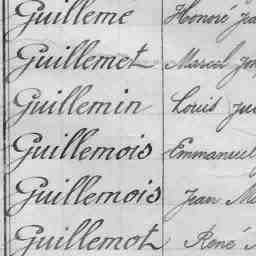 Guillemé Honoré Jea
Guillemet Marcel Jos
Guillemin Louis Jul
Guillemois Emmanuel
Guillemois Jean Ma
Guillemot René